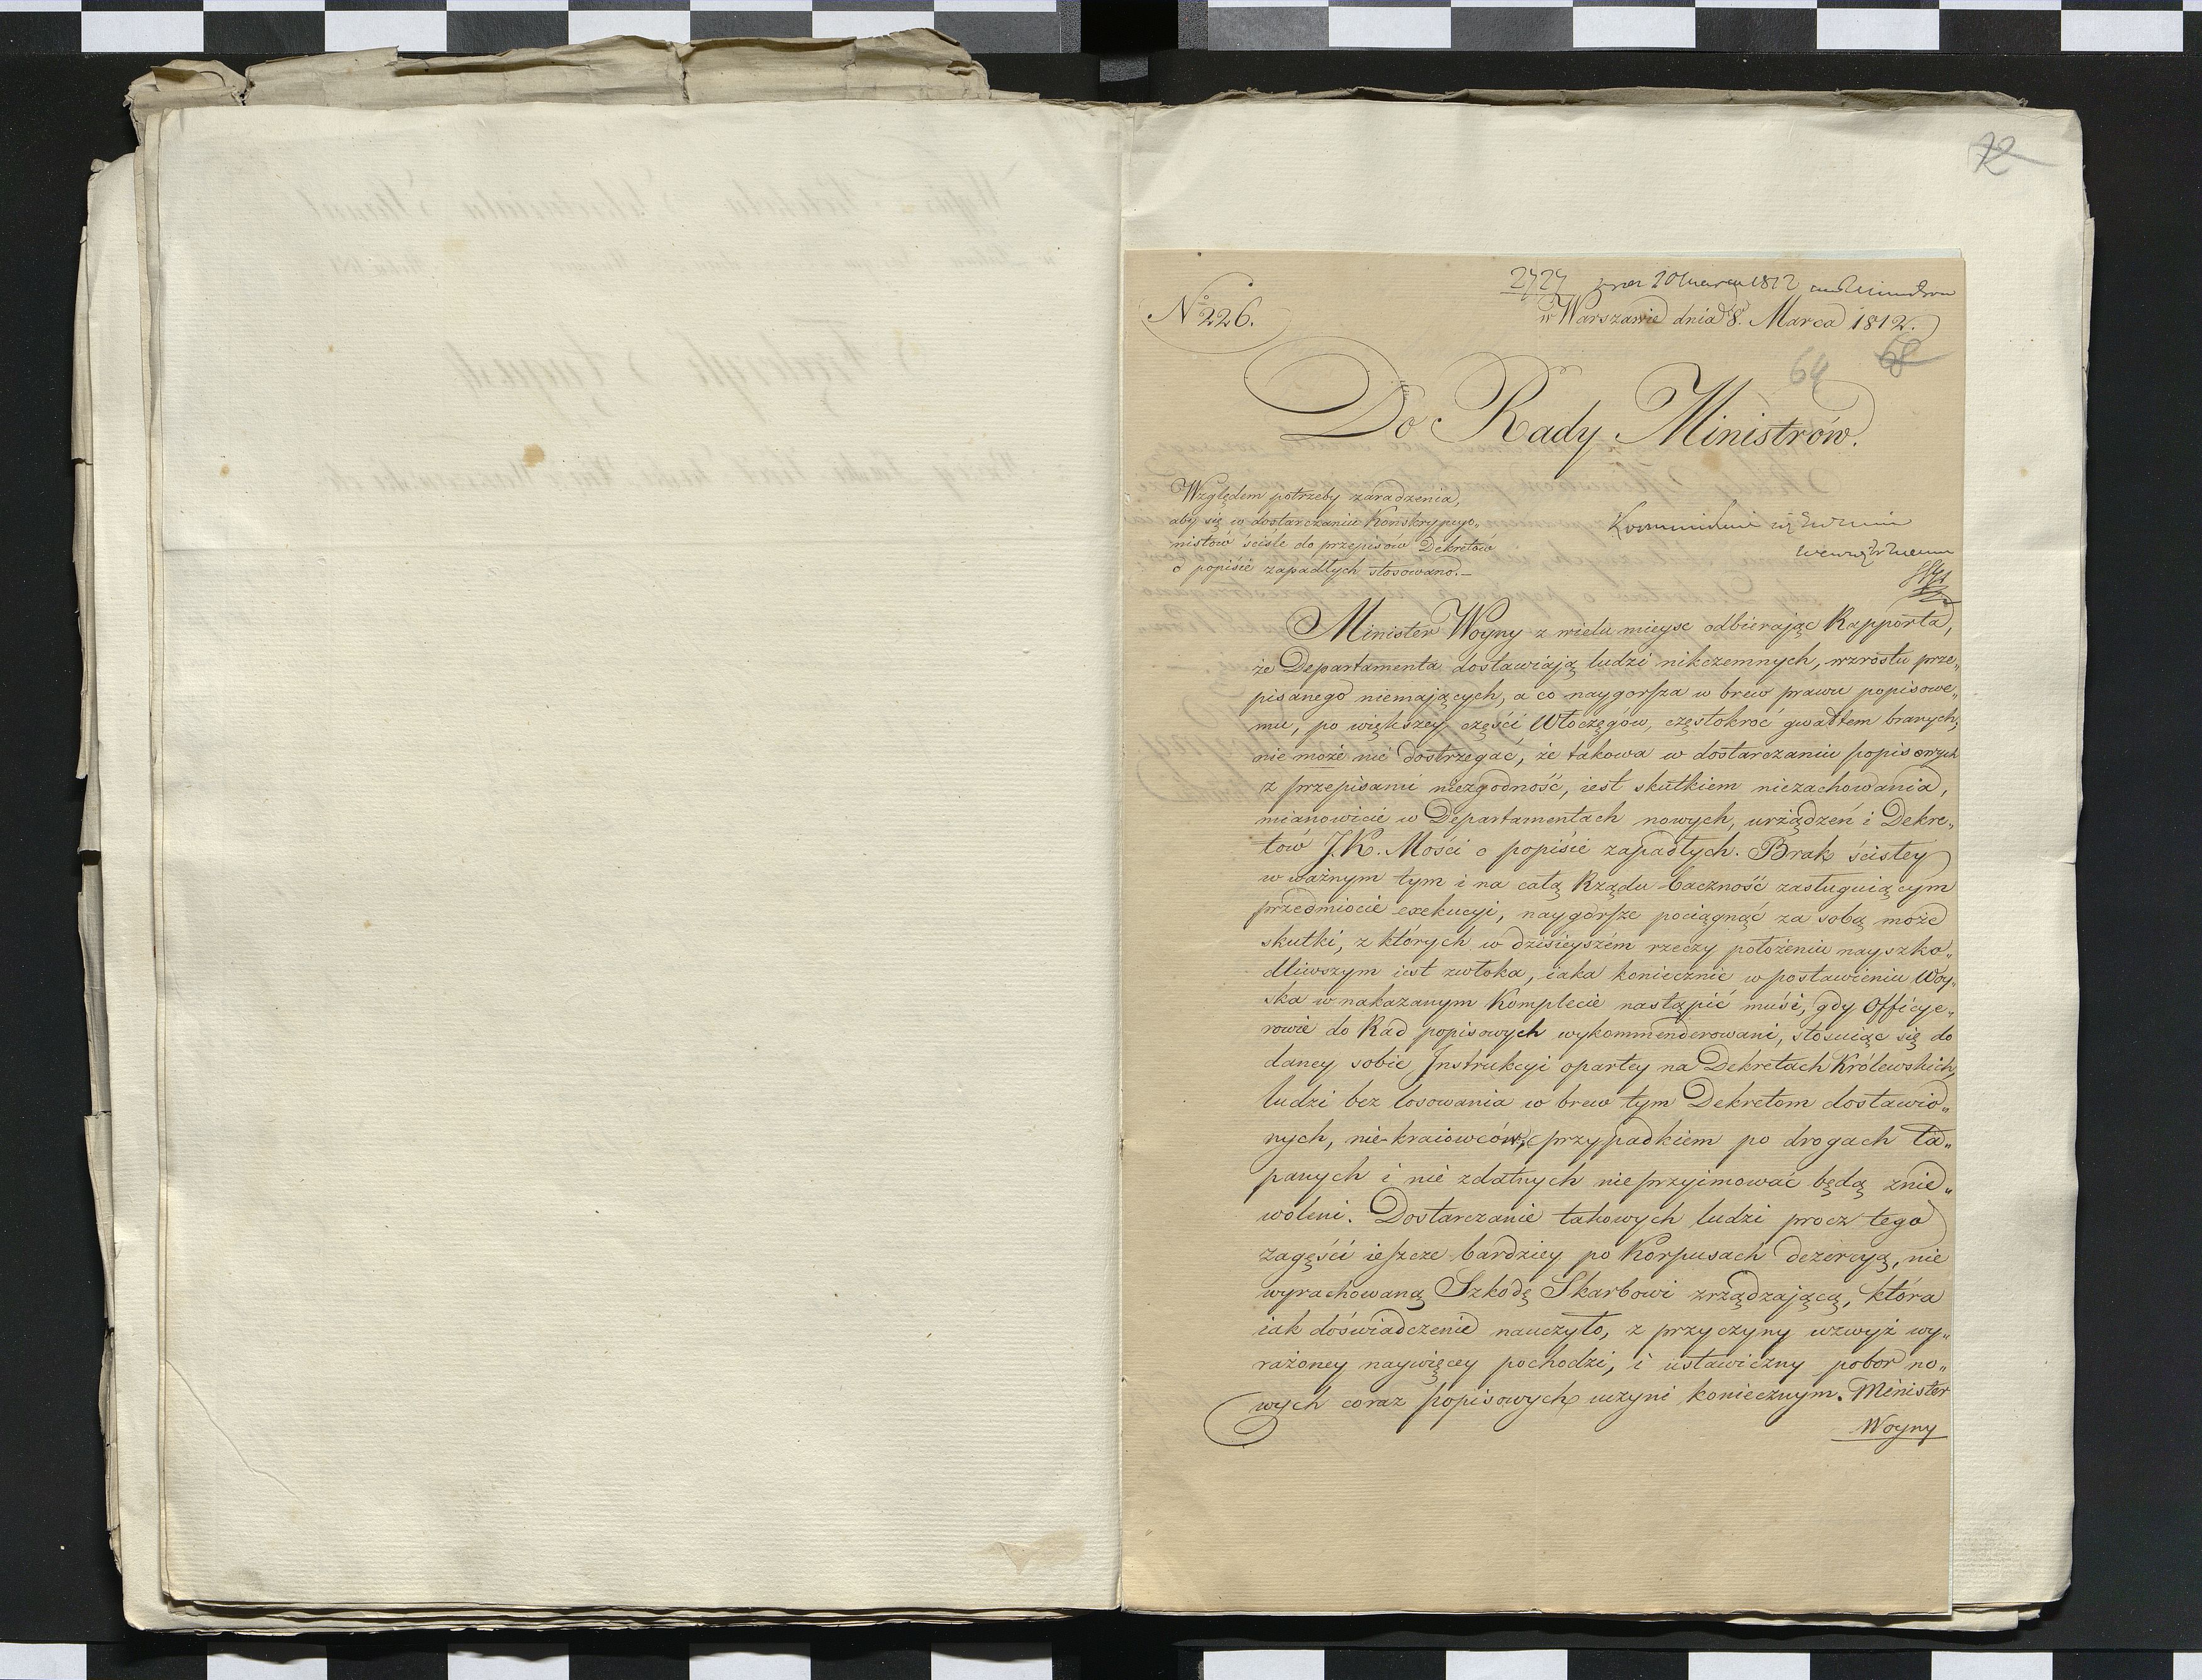 72
2727 20 Marca 1812
No 226.
w Warszawie dnia 8. Marca 1812.
64 68
Do Rady Ministrów.
Względem potrzeby zaradzenia,
aby się w dostarczaniu Konskrypcyo„
nistów ściśle do przepisów Dekretów
o popisie zapadłych stosowano.—
Minister Woyny z wielu mieysc odbierając Rapporta,
że Departamenta dostawiają ludzi nikczemnych, wzrostu prze„
pisanego niemających, a co naygorsza w brew prawu popisowe„
mu, po większey części Włoczęgów, częstokroć gwałtem branych;
nie może nie dostrzegać, że takowa w dostarczaniu popisowych
z przepisami niezgodność, iest skutkiem niezachowania,
mianowicie w Departamentach nowych, urządzeń i Dekre„
tów J.K. Mości o popisie zapadłych. Brak ścisłey
w ważnym tym i na całą Rządu baczność zasługuiącym
przedmiocie exekucyi, naygorsze pociągnąć za sobą może
skutki, z których w dzisieyszém rzeczy położeniu nayszko„
dliwszym iest zwłoka, iaka koniecznie w postawieniu Woy„
ska w nakazanym Komplecie nastąpić musi, gdy Officye„
rowie do Rad popisowych wykommenderowani, stosuiąc się do
daney sobie Instrukcyi opartey na Dekretach Królewskich,
ludzi bez losowania w brew tym Dekretom dostawio„
nych, nie-kraiowców, przypadkiem po drogach ła„
panych i nie zdatnych nieprzyimować będą znie„
woleni. Dostarczanie takowych ludzi procz tego
zagęści ieszcze bardziey po Korpusach dezercyą, nie
wyrachowaną Szkodę Skarbowi zrządzającą, która
iak doświadczenie nauczyło, z przyczyny wzwyż wy„
rażoney naywięcey pochodzi, i ustawiczny pobor no„
wych coraz popisowych uczyni koniecznym. Minister
Woyny